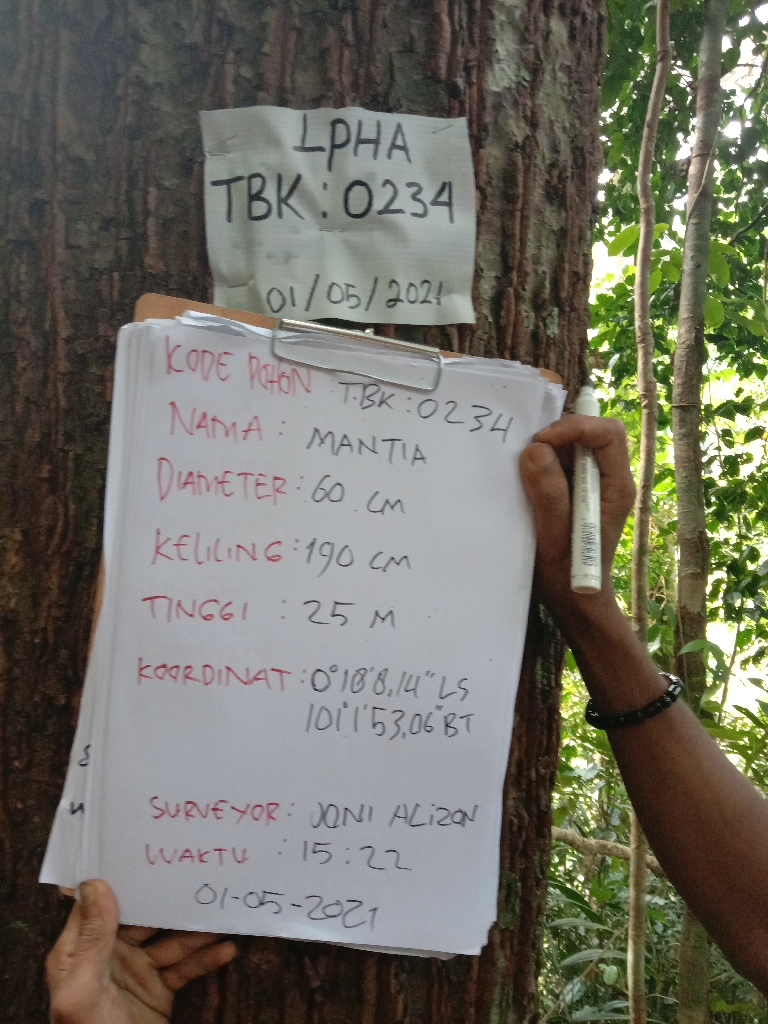 LPHA
TBK : 0234
01/05/2021
KODE POHON : TBK : 0234
NAMA : MANTIA
DIAMETER : 60 CM
KELILING : 190 CM
TINGGI : 25 M
KOORDINAT : 0°18'8,14" LS
101°1'53,06" BT
SURVEYOR : JONI ALIZON
WAKTU : 15 : 22
01-05-2021